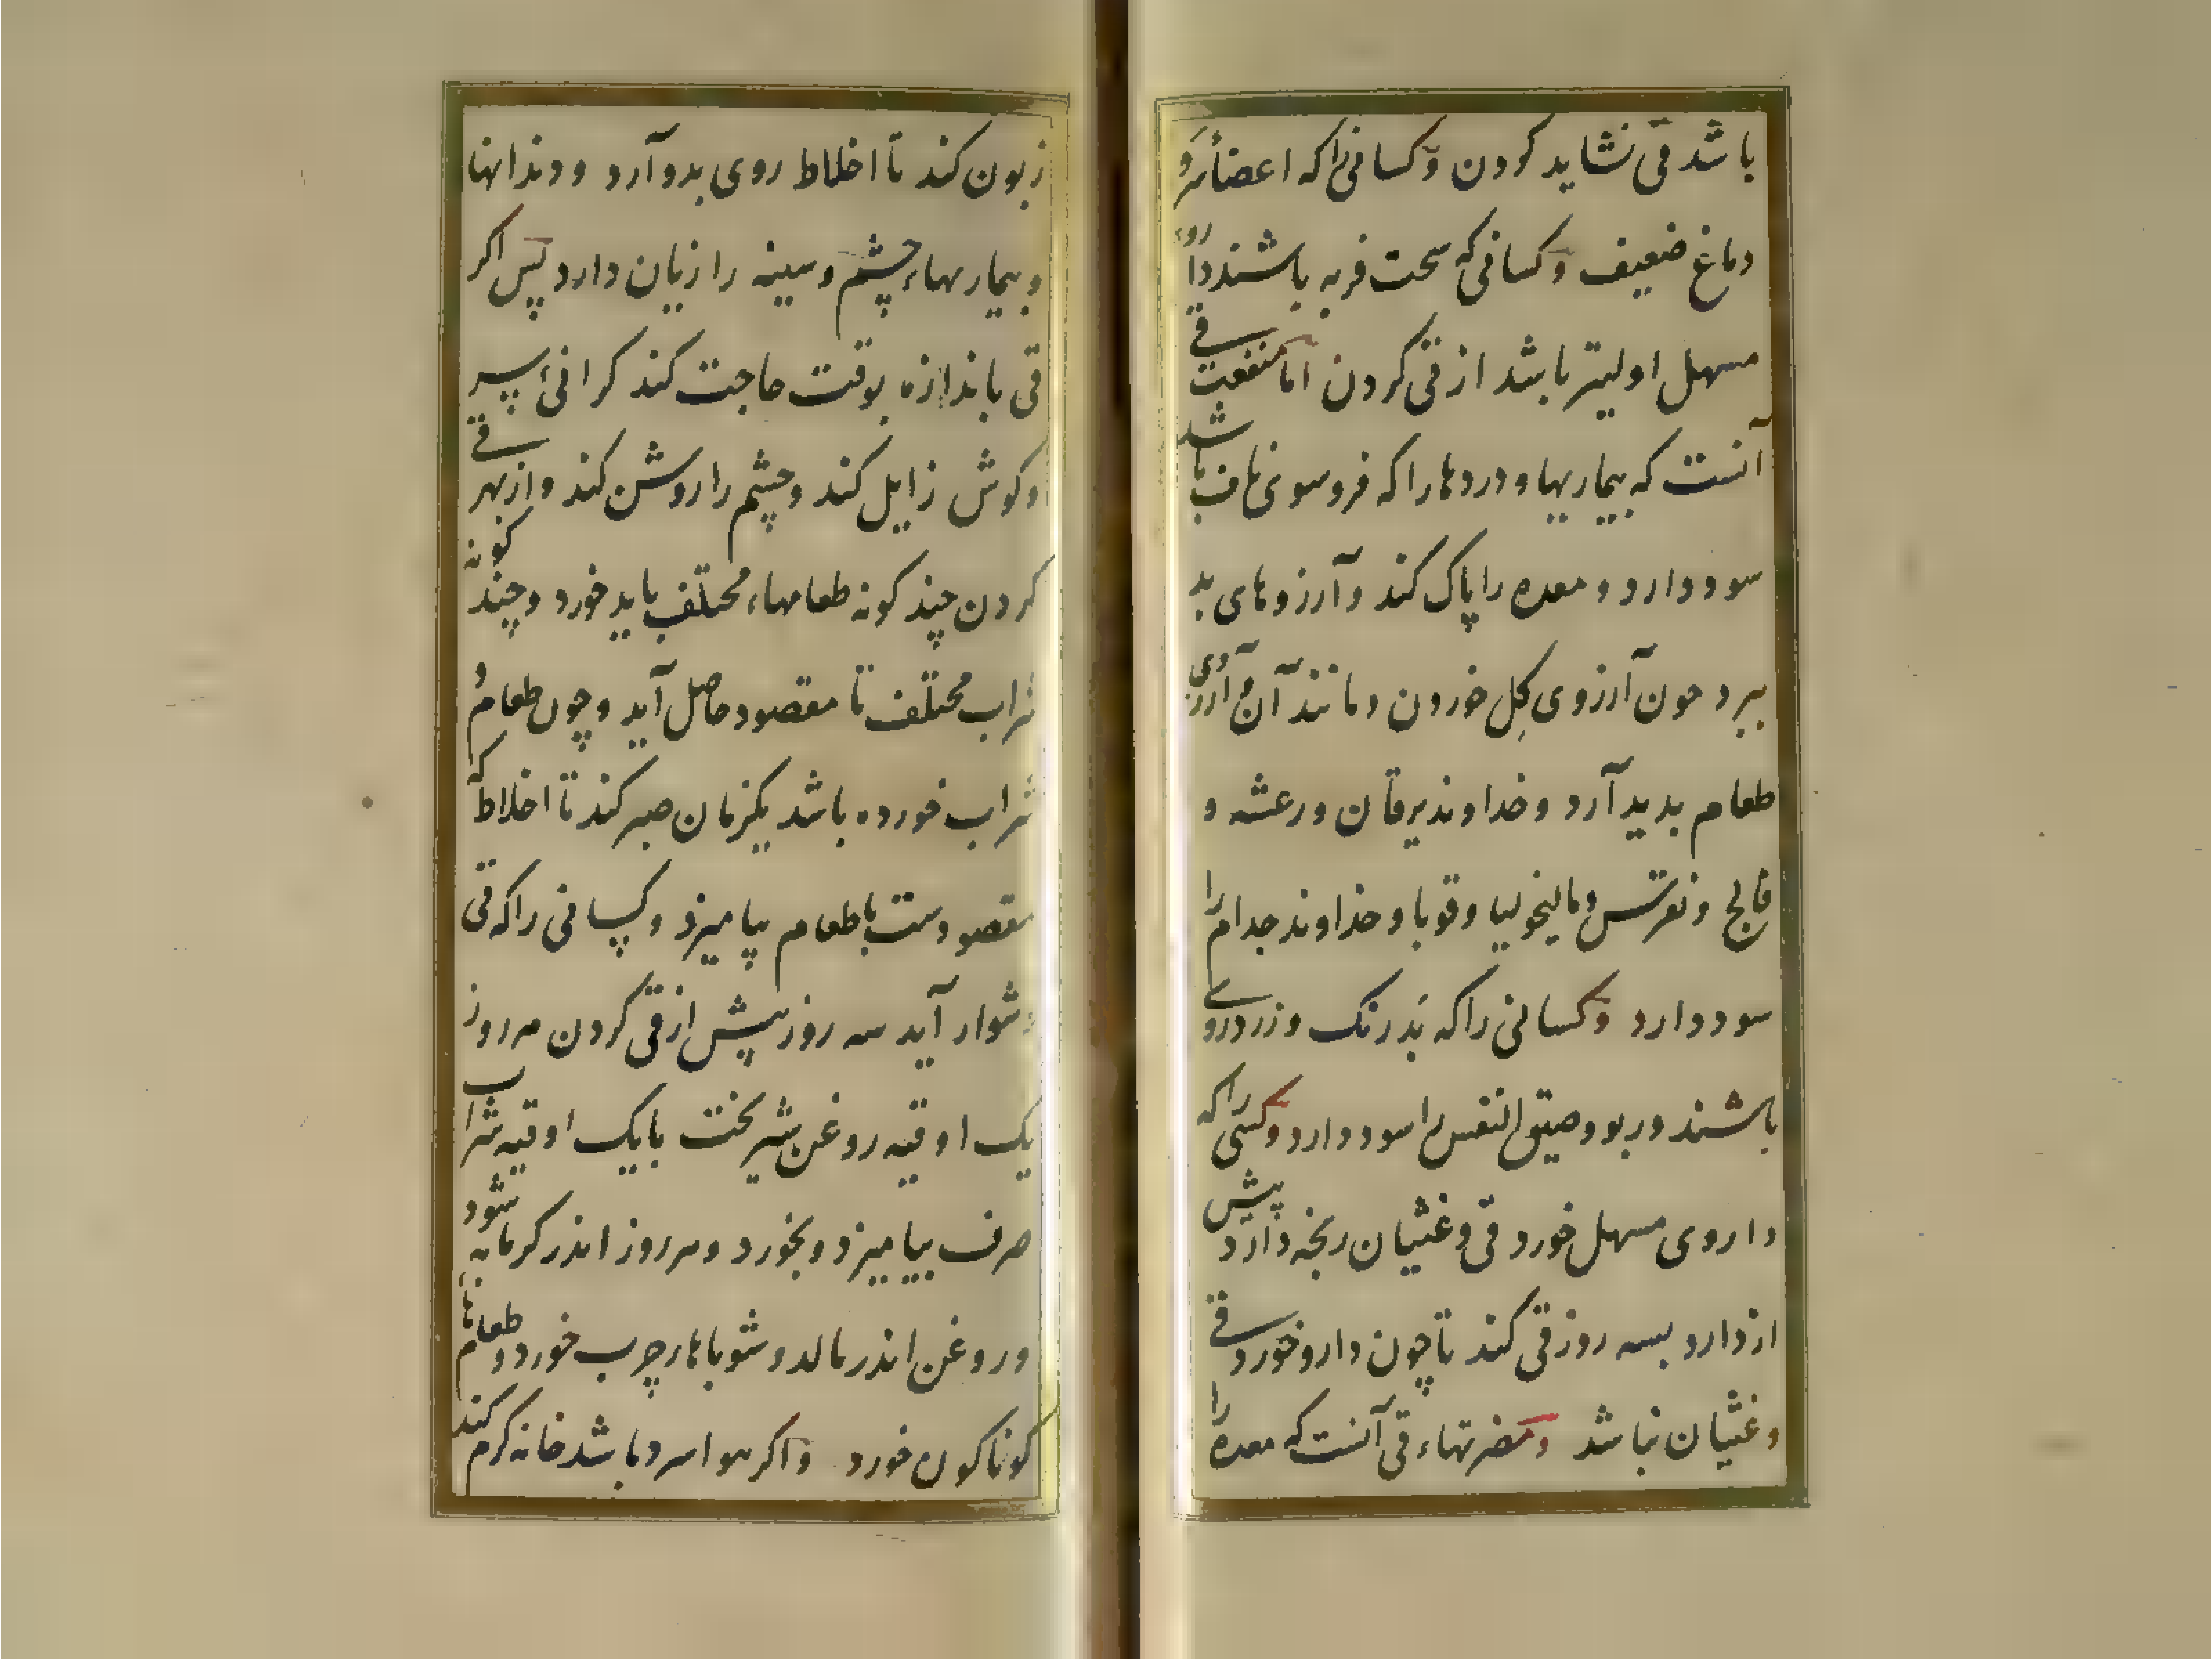 باشد قی نشاید کردن و کسانی را که اعضأ سر و
دماغ ضعیف و کسانی که سخت فربه باشند داروی
مسهل اولیتر باشد از قی کردن اما منفعت قی
آنست که بیماریها و دردها را که فروسوی ناف باشد
سود دارد و معده را پاک کند و آرزوهای بد
ببرد چون آرزوی گِل خوردن و مانند آن و آرزوی
طعام بدید آرد و خداوند یرقان و رعشه و
فالج و نقرس و مالیخولیا و قوبا و خداوند جدام را
سود دارد و کسانی را که بَدرنک و زردروی
باشند و ربو و ضیق النفس را سود دارد و کسی را که
داروی مسهل خورد قی و غثیان رنجه دارد پیش
از دارو بسه روز قی کند تا چون دارو خورد قی
و غثیان نباشد و مضرتهاء قی آنست که معده را
زبون کند تا اخلاط روی بدو آرد و دندانها
و بیماریهاء چشم و سینه را زیان دارد پس اکر
قی باندازه بوقت حاجت کند کرانئ سر
و کوش زایل کند و چشم را روشن کند و از بهر قی
کردن چند کونه طعامهاء مختلف باید خورد و چند کونه
شراب مختلف تا مقصود حاصل آید و چون طعام و
شراب خورده باشد یکزمان صبر کند تا اخلاط که
مقصودست با طعام بیامیزد و کسانی را که قی
دشوار آید سه روز پیش از قی کردن هر روز
یک اوقیه روغن شیرپخت با یک اوقیه شراب
صرف بیامیزد و بخورد و هر روز اندر کرمابه شود
و روغن اندر مالد و شوباهار چرب خورد و طعامها
کوناکون خورد و اکر هوا سرد باشد خانه کرم کند